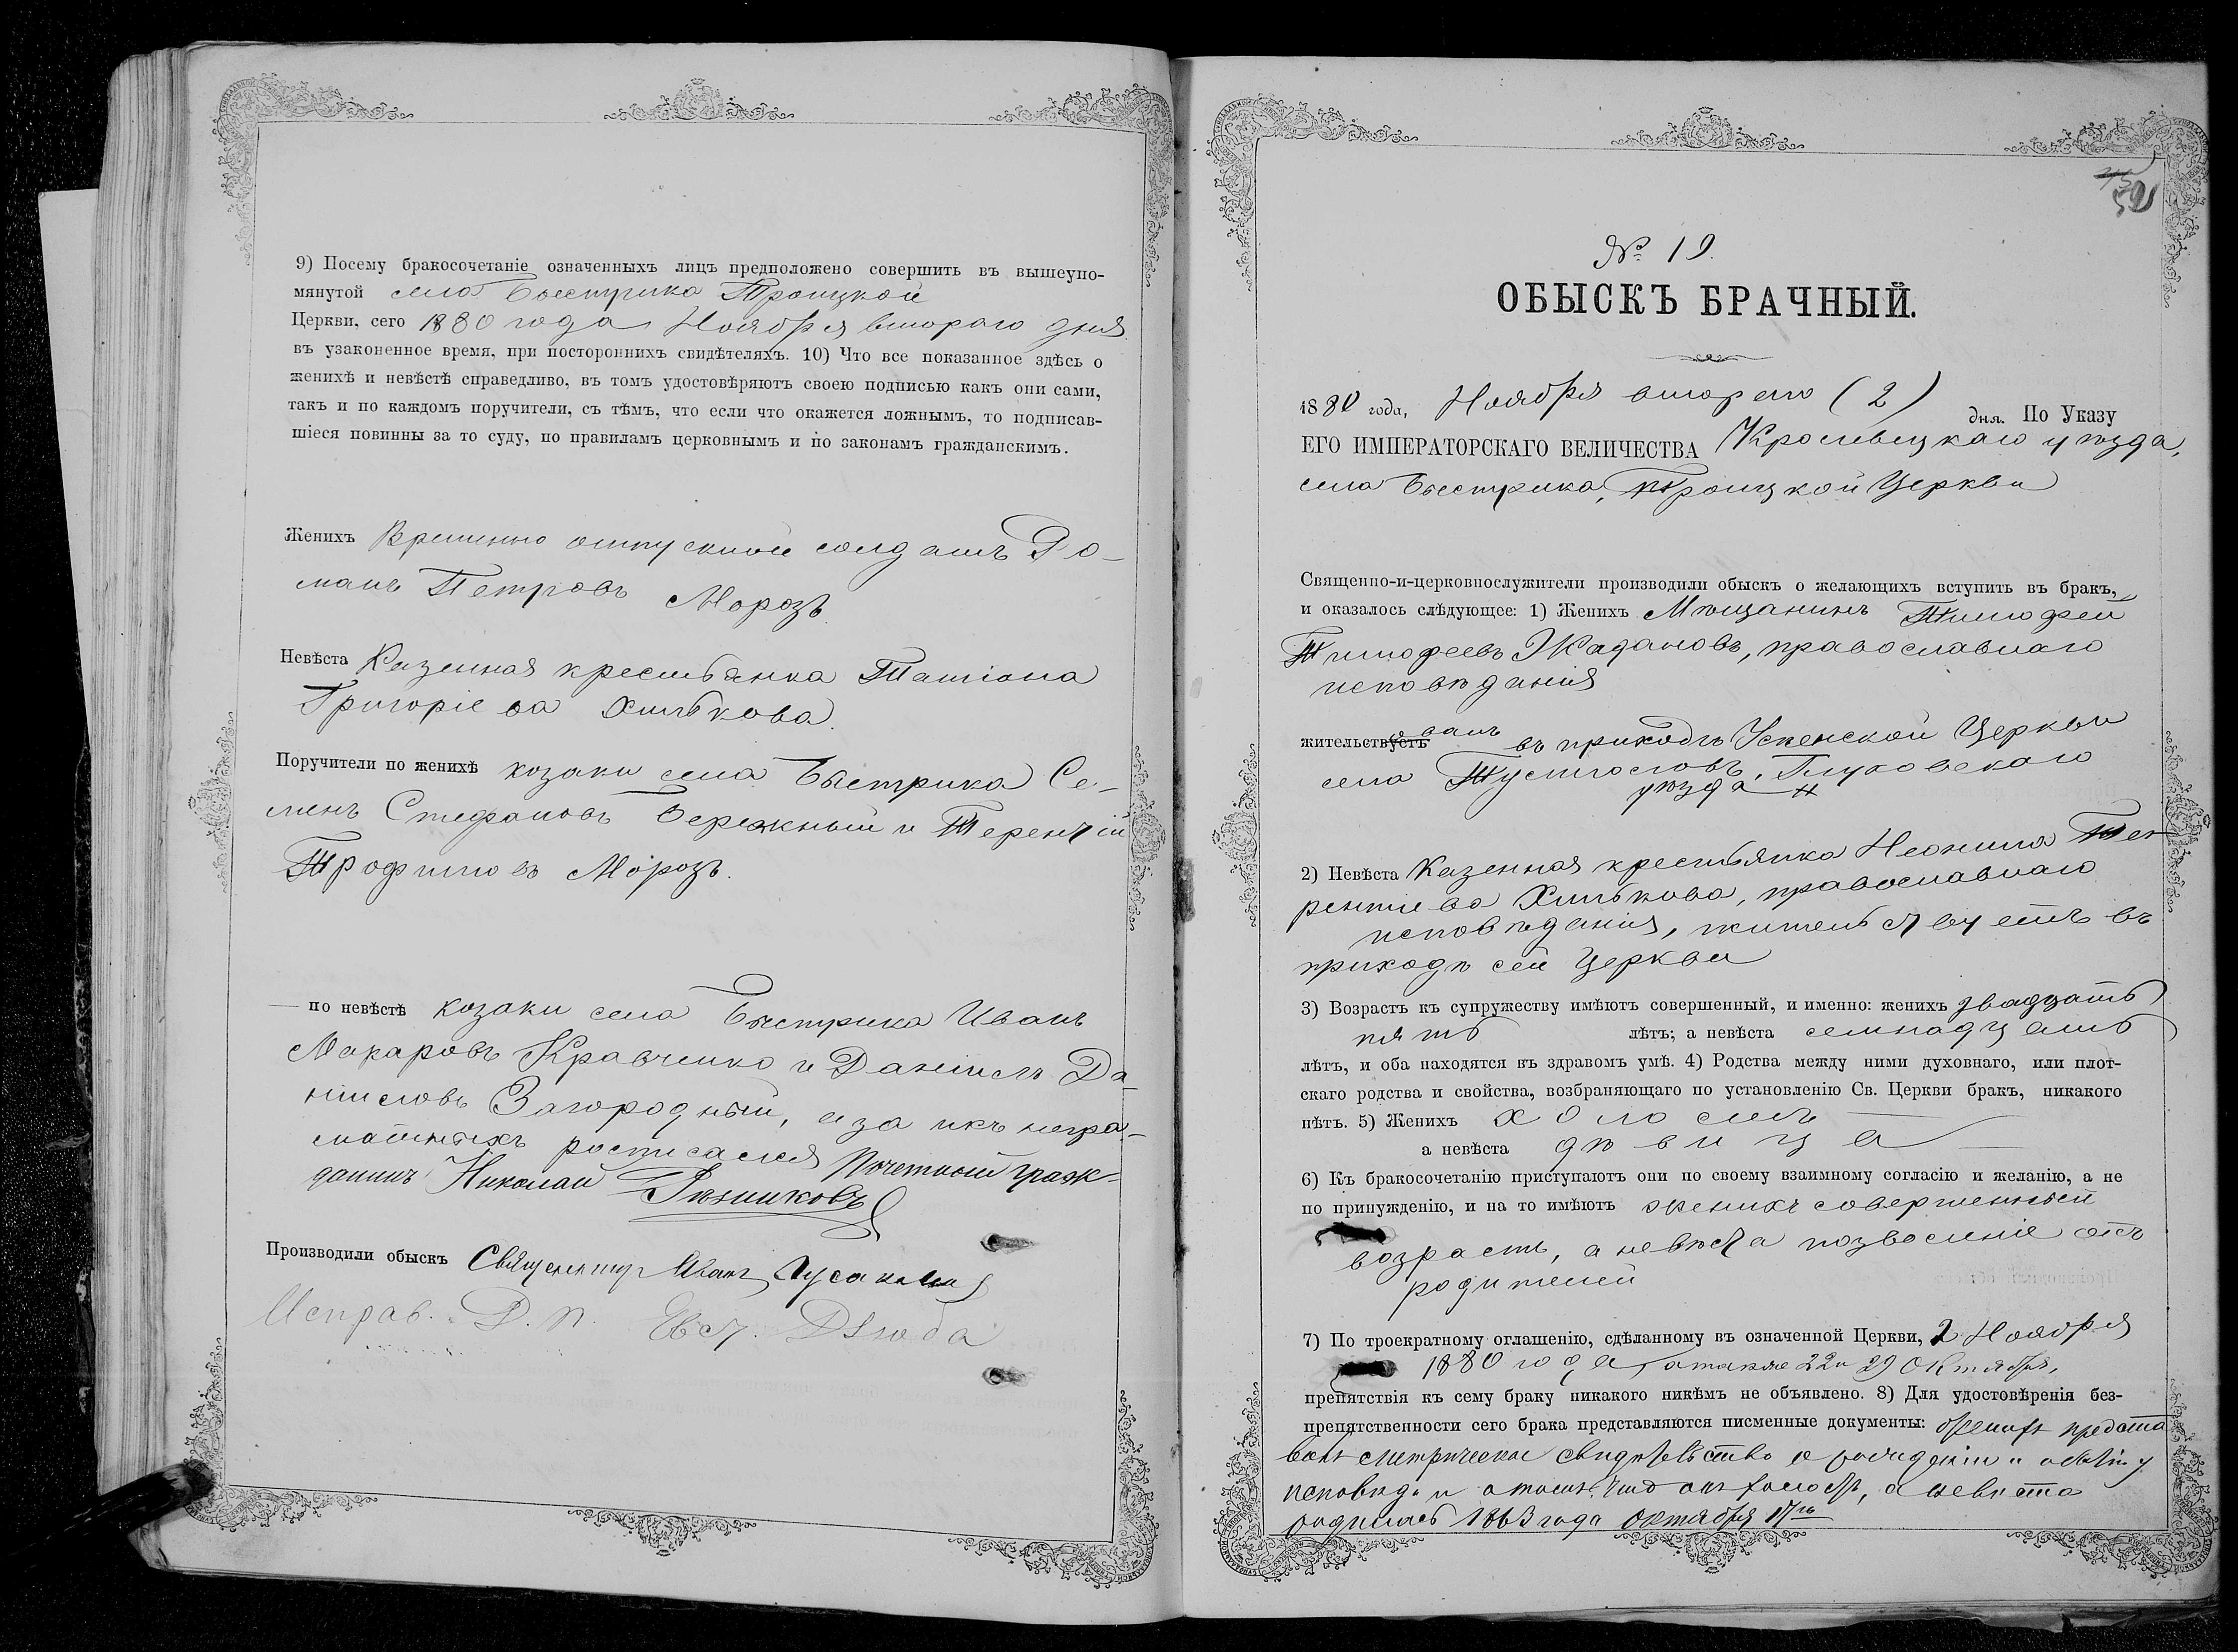 9) Посему бракосочетаніе означенныхъ лицъ предположено совершить въ вышеупо-
мянутой села Быстрика Троицкой
Церкви, сего 1880 года Ноября втораго дня
въ узаконенное время, при постороннихъ свидѣтеляхъ. 10) Что все показанное здѣсь о
женихѣ и невѣстѣ справедливо, въ томъ удостовѣряютъ своею подписью какъ они сами,
такъ и по каждомъ поручители, съ тѣмъ, что если что окажется ложнымъ, то подписав-
шіеся повинны за то суду, по правиламъ церковнымъ и по законамъ гражданскимъ.
Женихъ Временно отпускной солдатъ Ро-
манъ Петровъ Морозъ
Невѣста Казенная крестьянка Татіана
Григоріева Хилькова.
Поручители по женихѣ козаки села Быстрика Се-
менъ Стефановъ Бережный и Терентій
Трофимовъ Морозъ.
— по невѣстѣ козаки села Быстрика Иванъ
Макаровъ Кравченко и Даніилъ Да-
ніиловъ Загородный, а за ихъ негра-
мотныхъ росписался Почетный граж-
данинъ Николай
Производили обыскъ Священникъ Иванъ
Исправ. Д. п. Евст. Дзюба
№ 19.
ОБЫСКЪ БРАЧНЫЙ.
1880 года, Ноября втораго (2) дня. По Указу
ЕГО ИМПЕРАТОРСКАГО ВЕЛИЧЕСТВА Кролевецкаго уѣзда,
села Быстрика, Троицкой Церкви
Священно-и-церковнослужители производили обыскъ о желающихъ вступить въ бракъ,
и оказалось слѣдующее: 1) Женихъ Мѣщанинъ Тимофей
Тимофеевъ Жадановъ, православнаго
исповѣданія
жительствуетъ въ приходѣ Успенской Церкви
села Глуховскаго
уѣзда
2) Невѣста Казенная крестьянка Неонила Те-
рентіева Хилькова, православнаго
исповѣданія, жительствуетъ въ
приходѣ сей Церкви
3) Возрастъ къ супружеству имѣютъ совершенный, и именно: женихъ двадцать
пять лѣтъ; а невѣста семнадцать
лѣтъ, и оба находятся въ здравомъ умѣ. 4) Родства между ними духовнаго, или плот-
скаго родства и свойства, возбраняющаго по установленію Св. Церкви бракъ, никакого
нѣтъ. 5) Женихъ холостъ
а невѣста дѣвица
6) Къ бракосочетанію приступаютъ они по своему взаимному согласію и желанію, а не
по принужденію, и на то имѣютъ женихъ совершенный
возрастъ, а невѣста позволеніе отъ
родителей
7) По троекратному оглашенію, сдѣланному въ означенной Церкви, 2 Ноября
1880 года, а также 22 и 29 Октября,
препятствія къ сему браку никакого никѣмъ не объявлено. 8) Для удостовѣренія без-
препятственности сего брака представляются писменные документы: женихъ предста
вилъ метрическое свидѣтельство о рожденіи и о
исповѣди и о томъ что онъ холостъ, а невѣста
родилась 1863 года Октября 17го